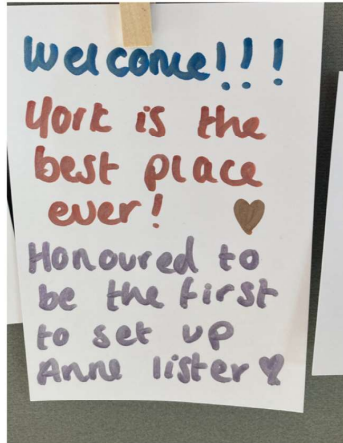 Welcome!!!
York is the
best place
ever! ♥
Honoured to
be the first
to set up
Anne lister ♥